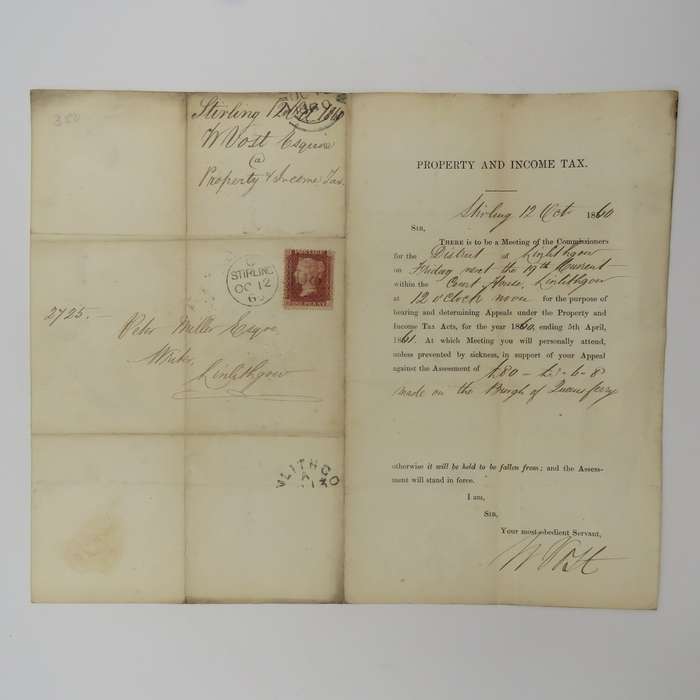 350
Stirling 12 Oct 1860
W Vost Esquire
(a)
Property & Income Tax.
STIRLING
OC 12
60
POSTAGE
ONE PENNY
2725.—
Peter Miller Esqre,
Writer,
Linlithgow
NLITHGO
PROPERTY AND INCOME TAX.
Stirling 12 Oct 1860
SIR,
THERE is to be a Meeting of the Commissioners
for the District of Linlithgow
on Friday next the 19th Current
within the Court House, Linlithgow
at 12 o'Clock noon for the purpose of
hearing and determining Appeals under the Property and
Income Tax Acts, for the year 1860, ending 5th April,
1861. At which Meeting you will personally attend,
unless prevented by sickness, in support of your Appeal
against the Assessment of £80 – £1-6-8
made on the Burgh of Queensferry
otherwise it will be held to be fallen from; and the Assess-
ment will stand in force.
I am,
SIR,
Your most obedient Servant,
W Vost